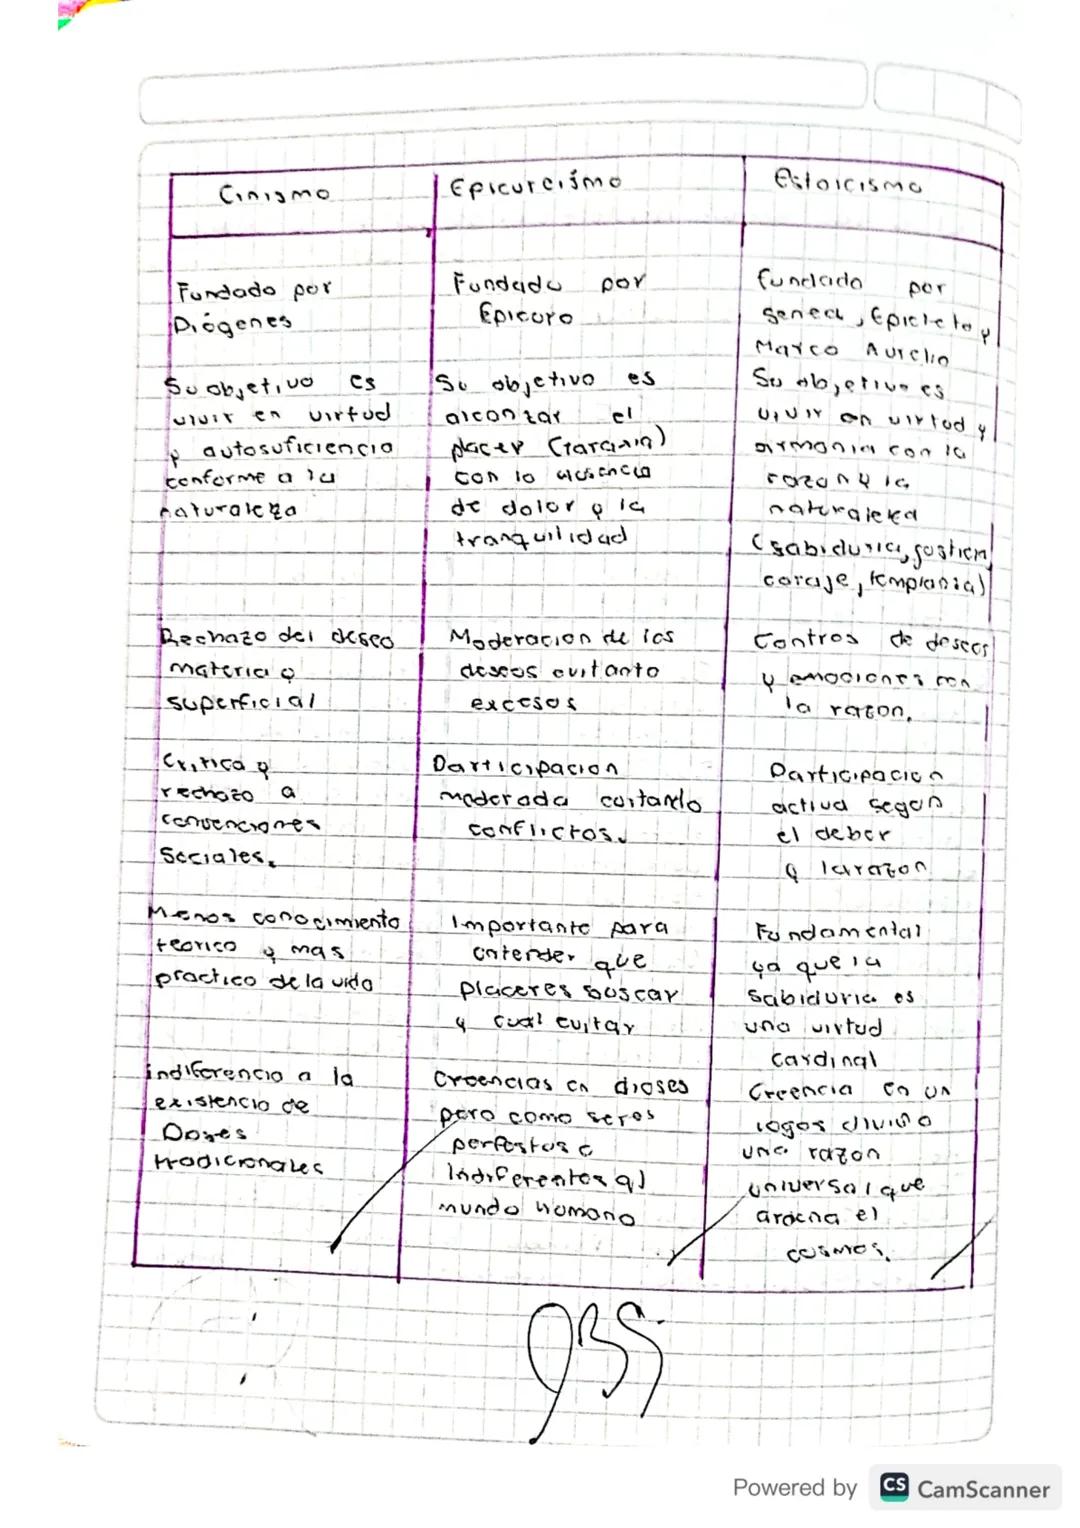 Cinismo
Fundado por
Diógenes
Su objetivo es
vivir en virtud
y autosuficiencia
conforme a la
naturaleza
Rechazo del deseo
materia y
superficial
Critica y
rechazo a
convenciones
sociales.
Menos conocimiento
teorico y mas
practico de la vida
indiferencia a la
existencia de
Dioses
tradicionales
Epicureismo
Fundado por
Epicuro
Su objetivo es
alconzar el
placer
con la ausencia
de dolor y la
tranquilidad
Moderacion de los
deseos evitanto
excesos
Participacion
moderada evitando
conflictos.
Importante para
entender que
placeres buscar
y cual evitar
Creencias en dioses
pero como seres
perfectos e
Indiferentes al
mundo humano
Estoicismo
fundado por
seneca, Epicteto y
Marco Aurelio
Su objetivo es
vivir en virtud y
armonia con la
razon y la
naturaleza
(sabiduria, justicia,
coraje, templanza)
Contros de deseos
y emociones con
la razon.
Participacion
activa segun
el deber
y la razon
Fundamental
ya que la
sabiduria es
una virtud
cardinal
Creencia en un
logos divino
una razon
universal que
ordena el
cosmos.
Powered by CS CamScanner